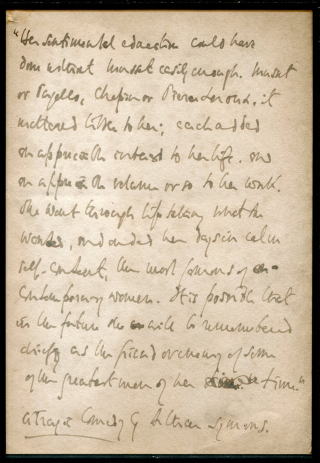 "Her sentimental education could have
done without Musset easily enough. Musset
or Pagello, Chopin or Pierre Leroux, it
mattered little to her; each added
an appreciable interest to her life. and
an appreciable volume or so to her work.
She went through life taking what she
wanted, and ended her days in calm
self-content, the most famous of
Contemporary women. It is possible that
in the future she will be remembered
chiefly as the friend or enemy of some
of the greatest men of her time."
Symons.